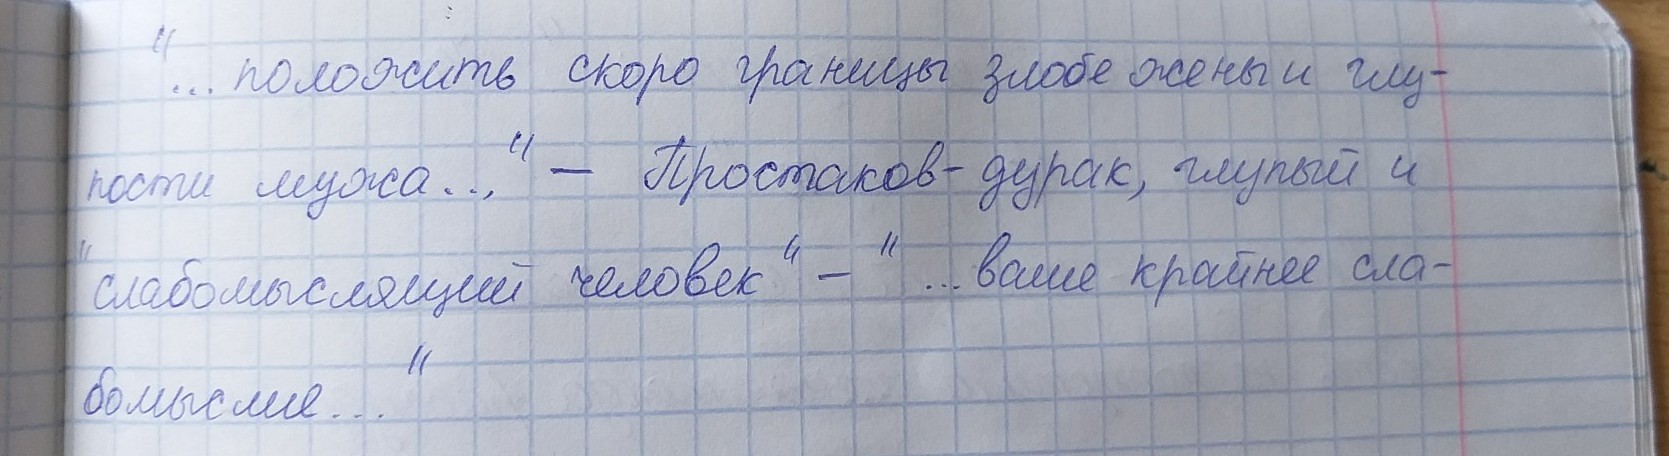 "... положить скоро границы злобе жены и глу-
пости мужа..." - Простаков-дурак, глупый и
"слабомыслящий человек" - "... ваше крайнее сла-
бомыслие..."